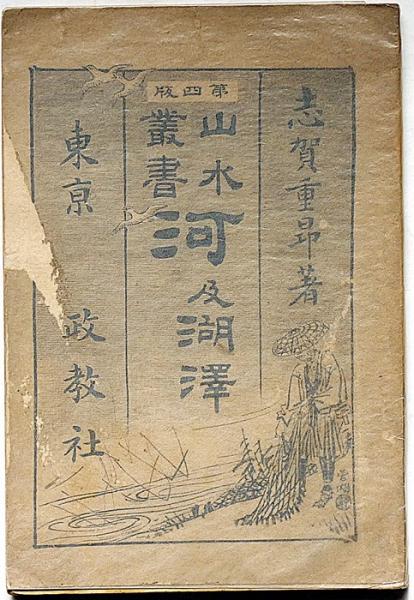 志賀重昂著
第四版
山水
叢書
河及湖澤
東京 政教社